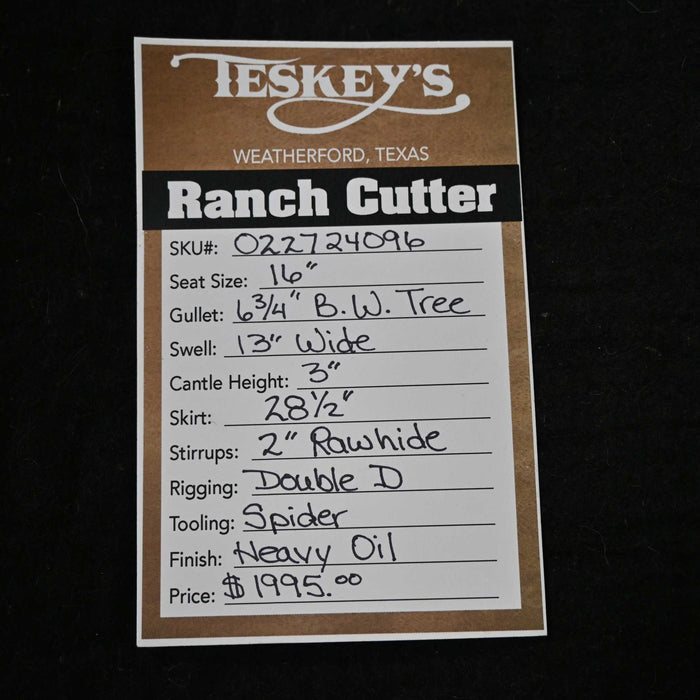 TESKEY'S
WEATHERFORD, TEXAS
Ranch Cutter
SKU#: 022724096
Seat Size: 16"
Gullet: 6 3/4" B.W. Tree
Swell: 13" Wide
Cantle Height: 3"
Skirt: 28 1/2"
Stirrups: 2" Rawhide
Rigging: Double D
Tooling: Spider
Finish: Heavy Oil
Price: $1995.00